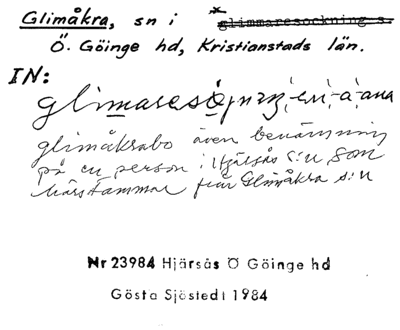 Glimåkra, sn i * glimmaresockning s.
Ö. Göinge hd, Kristianstads län.
IN:
glimaresöjnzŋ, -en, -a, -ana
glimåkrabo även benämning
på en person i Hjärsås s:n som
härstammar från Glimåkra s:n
Nr 23984 Hjärsås Ö Göinge hd
Gösta Sjöstedt 1984